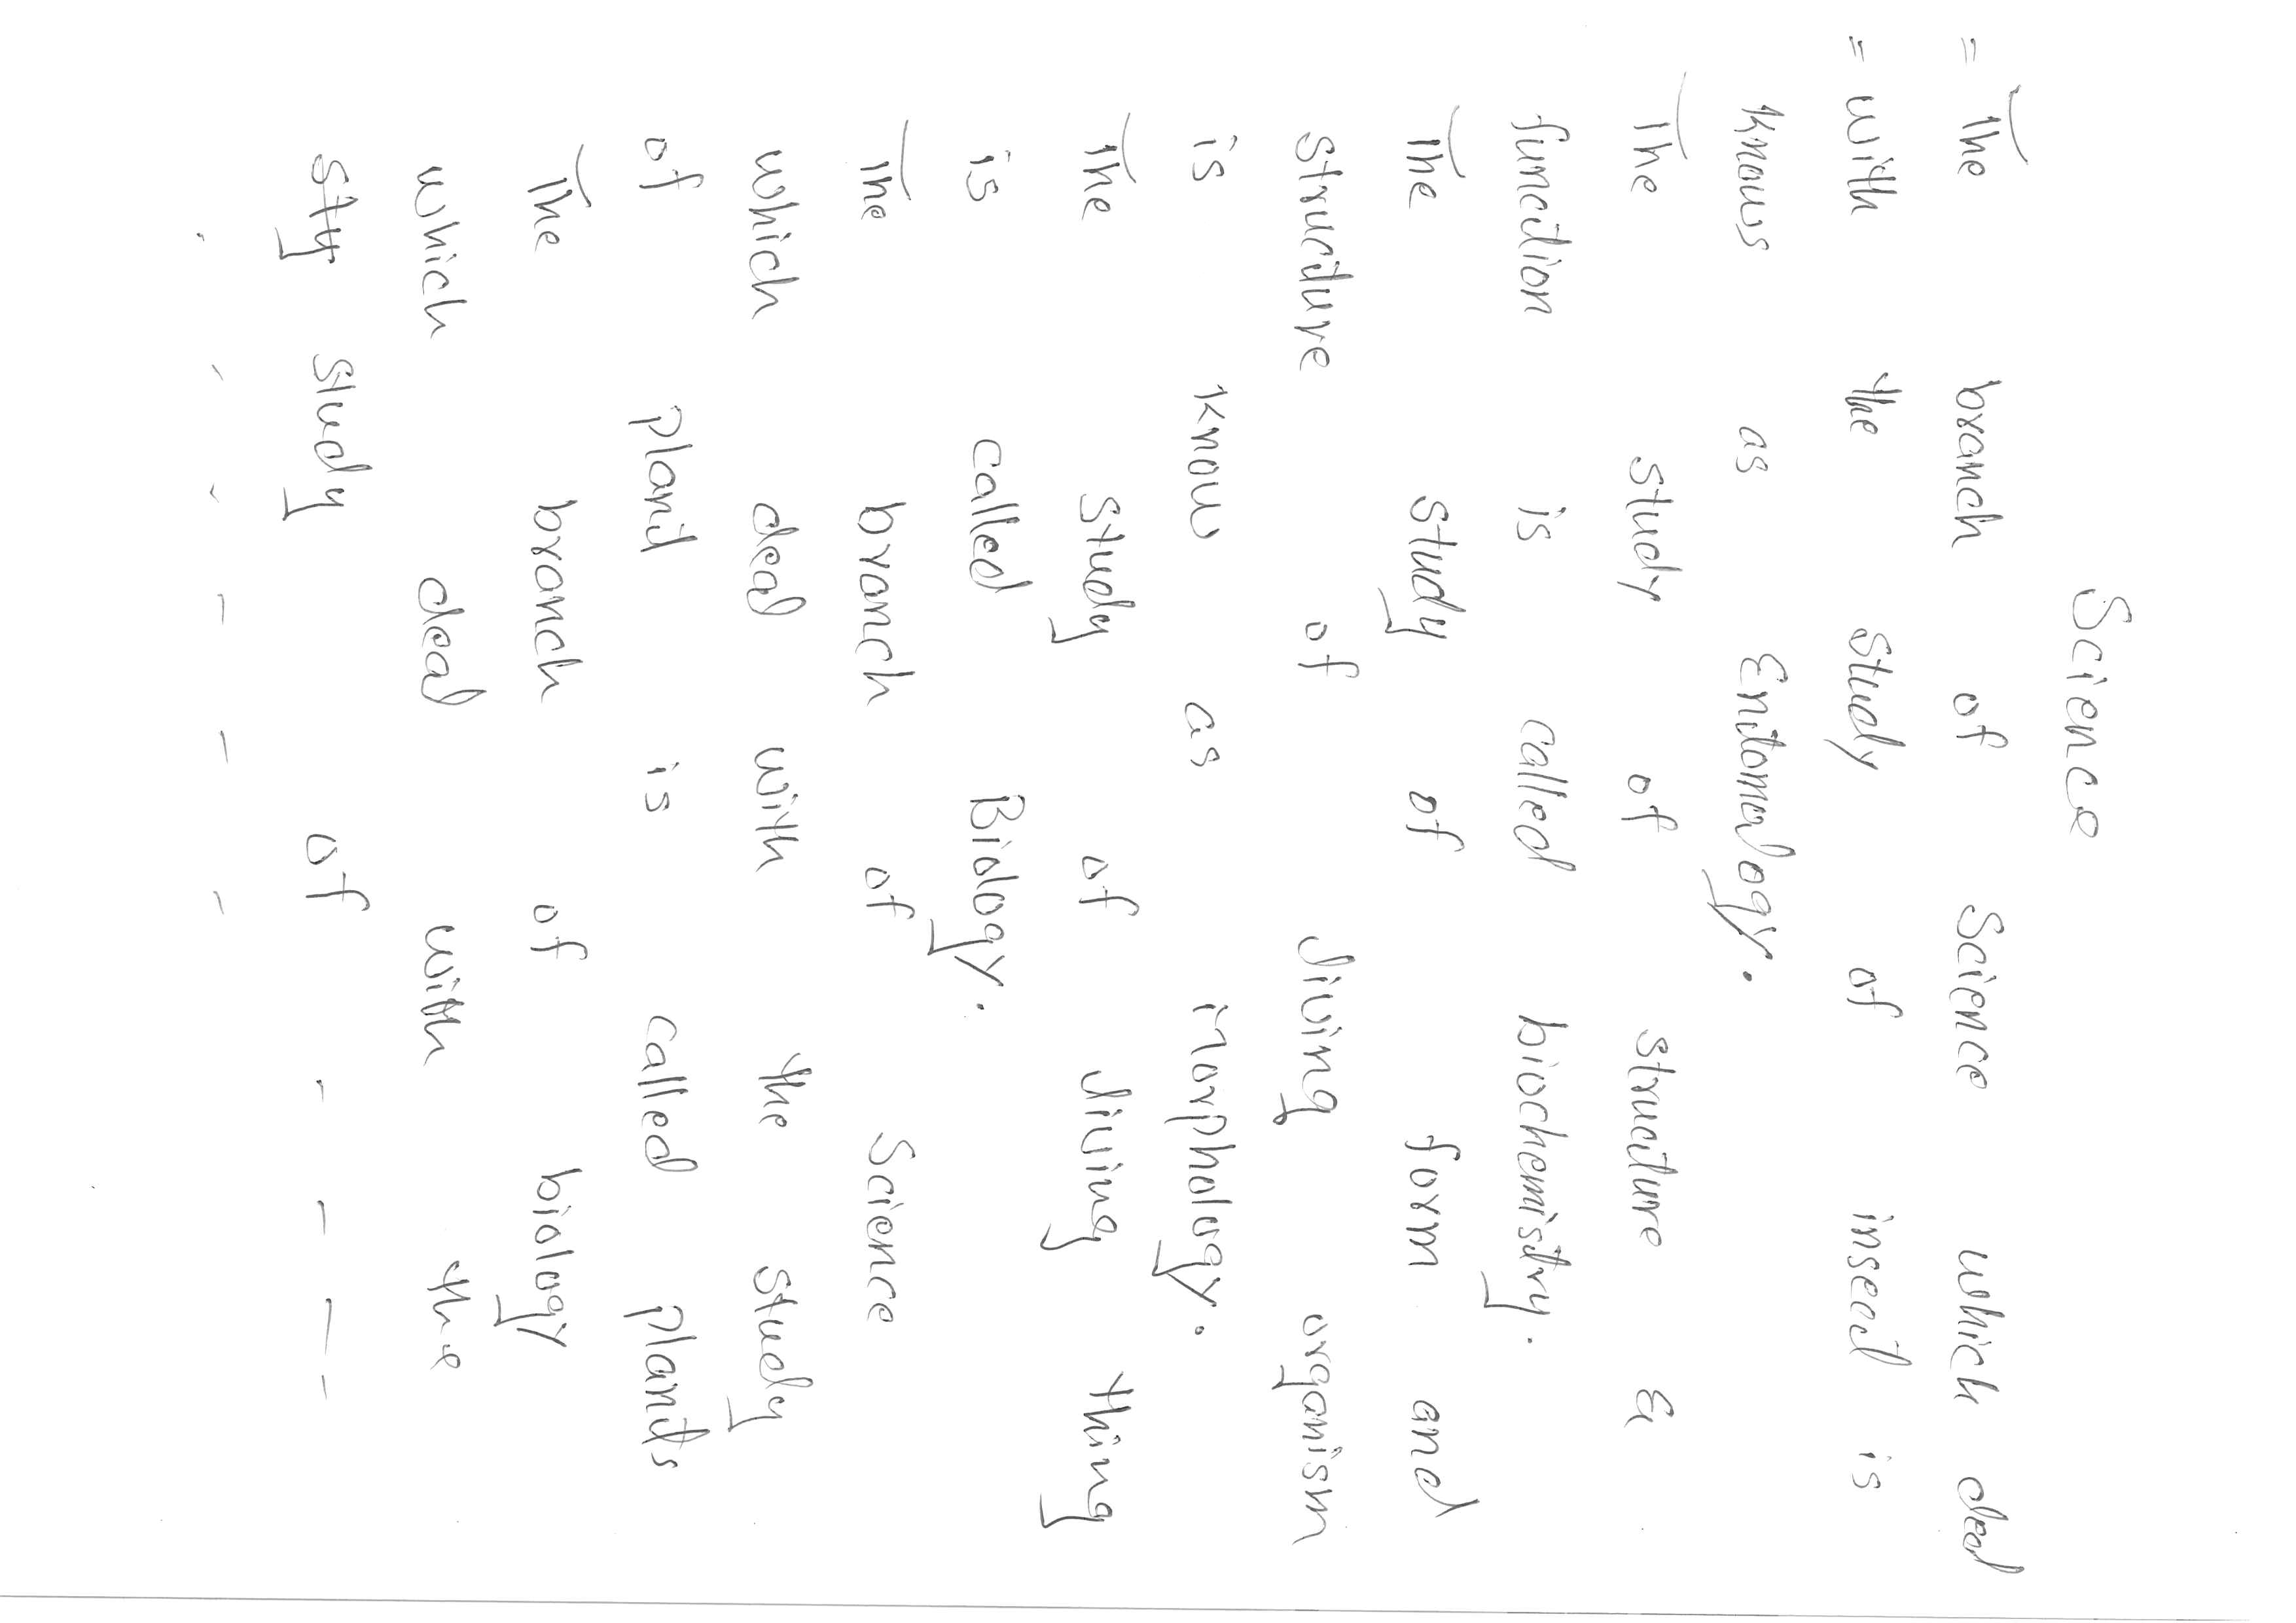 Science
= The branch of Science which deal
= with the study of insect is
Knows as Entomology.
The study of structure &
function is called biochemistry.
The study of form and
structure of living organism
is know as Morphology.
The study of living thing
is called Biology.
The branch of Science
which deal with the study
of plant is called plants
The branch of biology
which deal with the
sty study of - - - -
- - - - - -